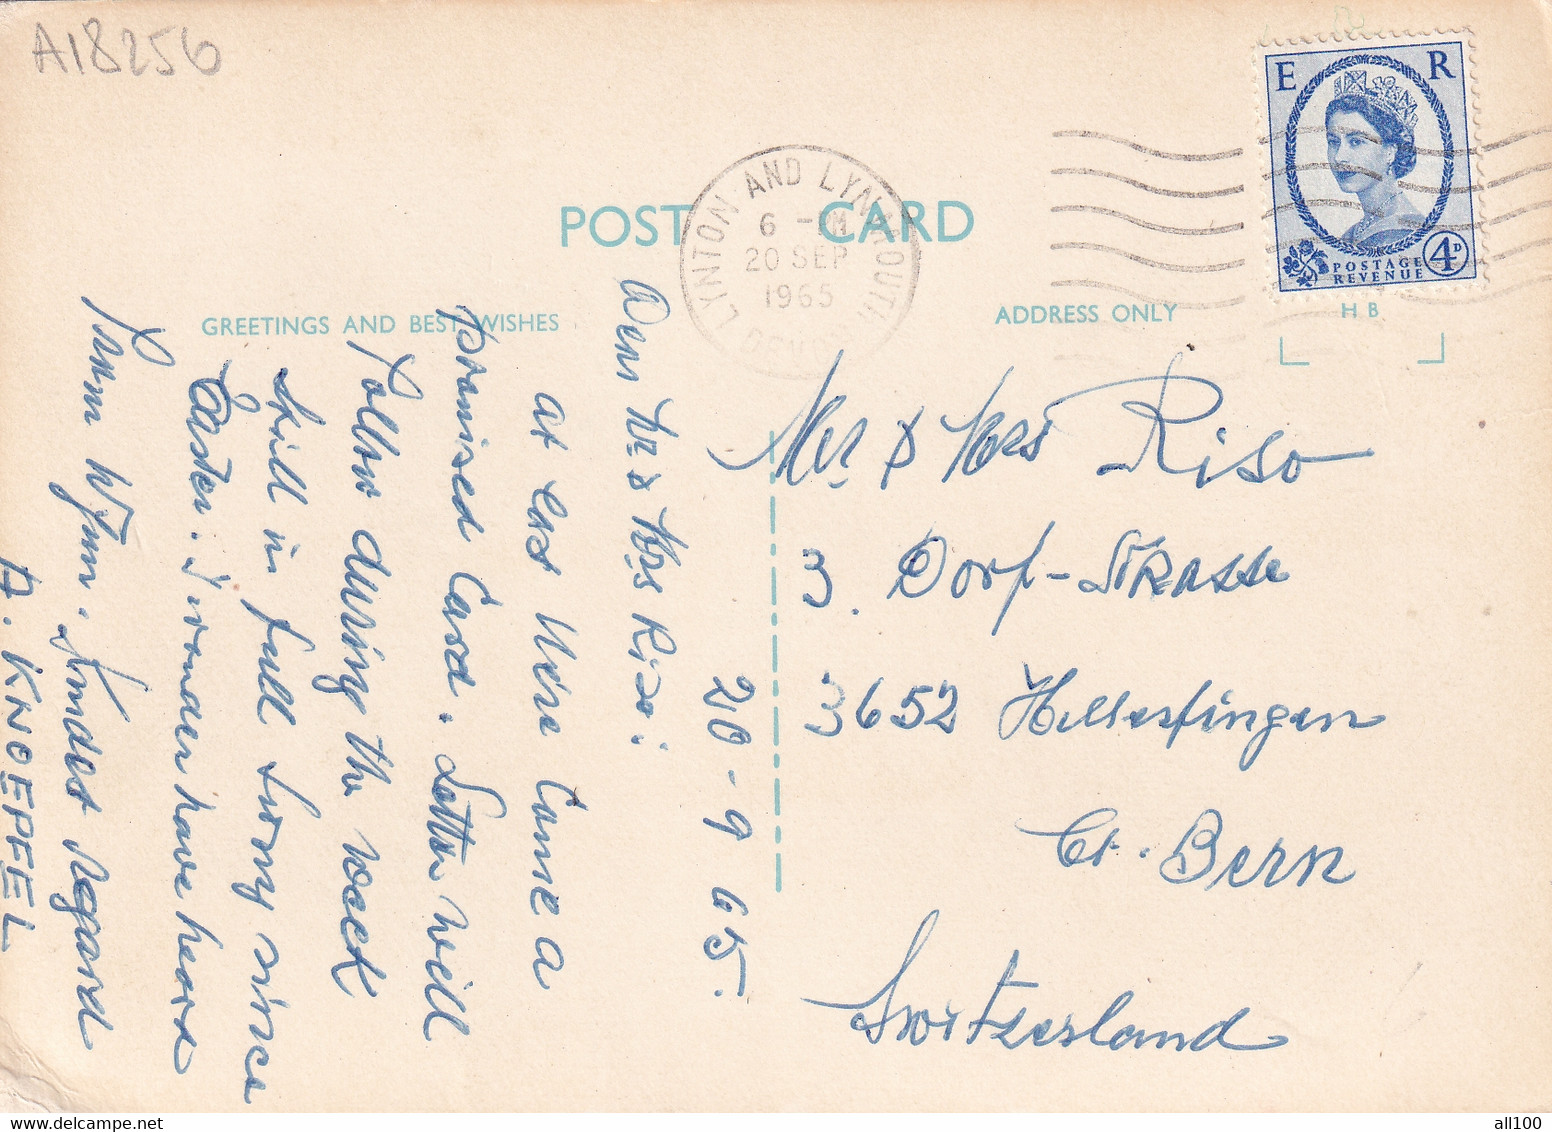 A18256
E R
POSTAGE
REVENUE
4D
LYNTON AND LYNMOUTH
DEVON
6 - PM
20 SEP
1965
POST CARD
GREETINGS AND BEST WISHES
ADDRESS ONLY
HB
20-9 65.
Dear Mr & Mrs Riso:
at last Here Come a
promised Card. Letter will
follow during the week
still in full swing since
Easter. I wonder have heard
from Wynn. Kindest regard
A. KNOEPFEL
Mr & Mrs Riso
3. Dorf-Strasse
3652 Hilterfingen
Ct. Bern
Switzerland
all100